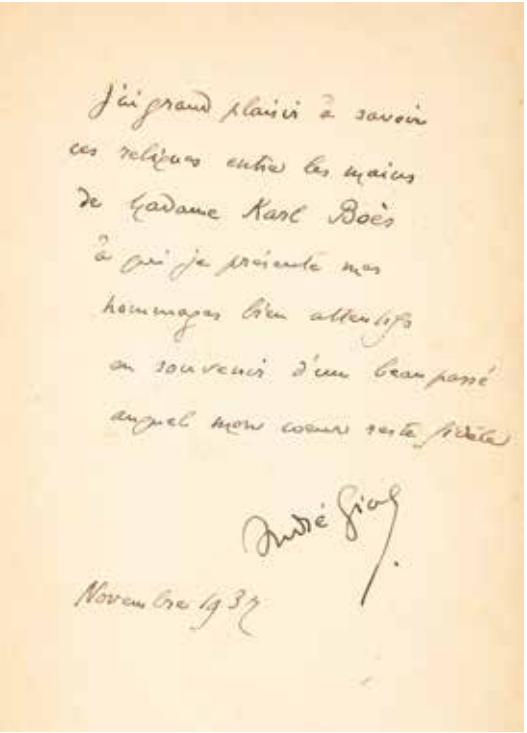 J'ai grand plaisir à savoir
ces reliques entre les mains
de Madame Karl Boès
à qui je présente mes
hommages bien attentifs
en souvenir d'un beau passé
auquel mon coeur reste fidèle
André Gide.
Novembre 1937